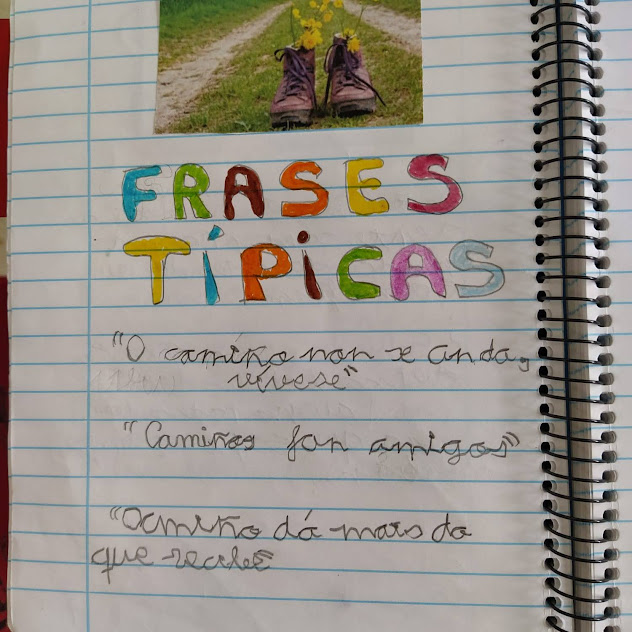 FRASES
TÍPICAS
"O camiño non se anda,
vívese"
"Camiños fan amigos"
"O camiño dá mais do
que recibe"